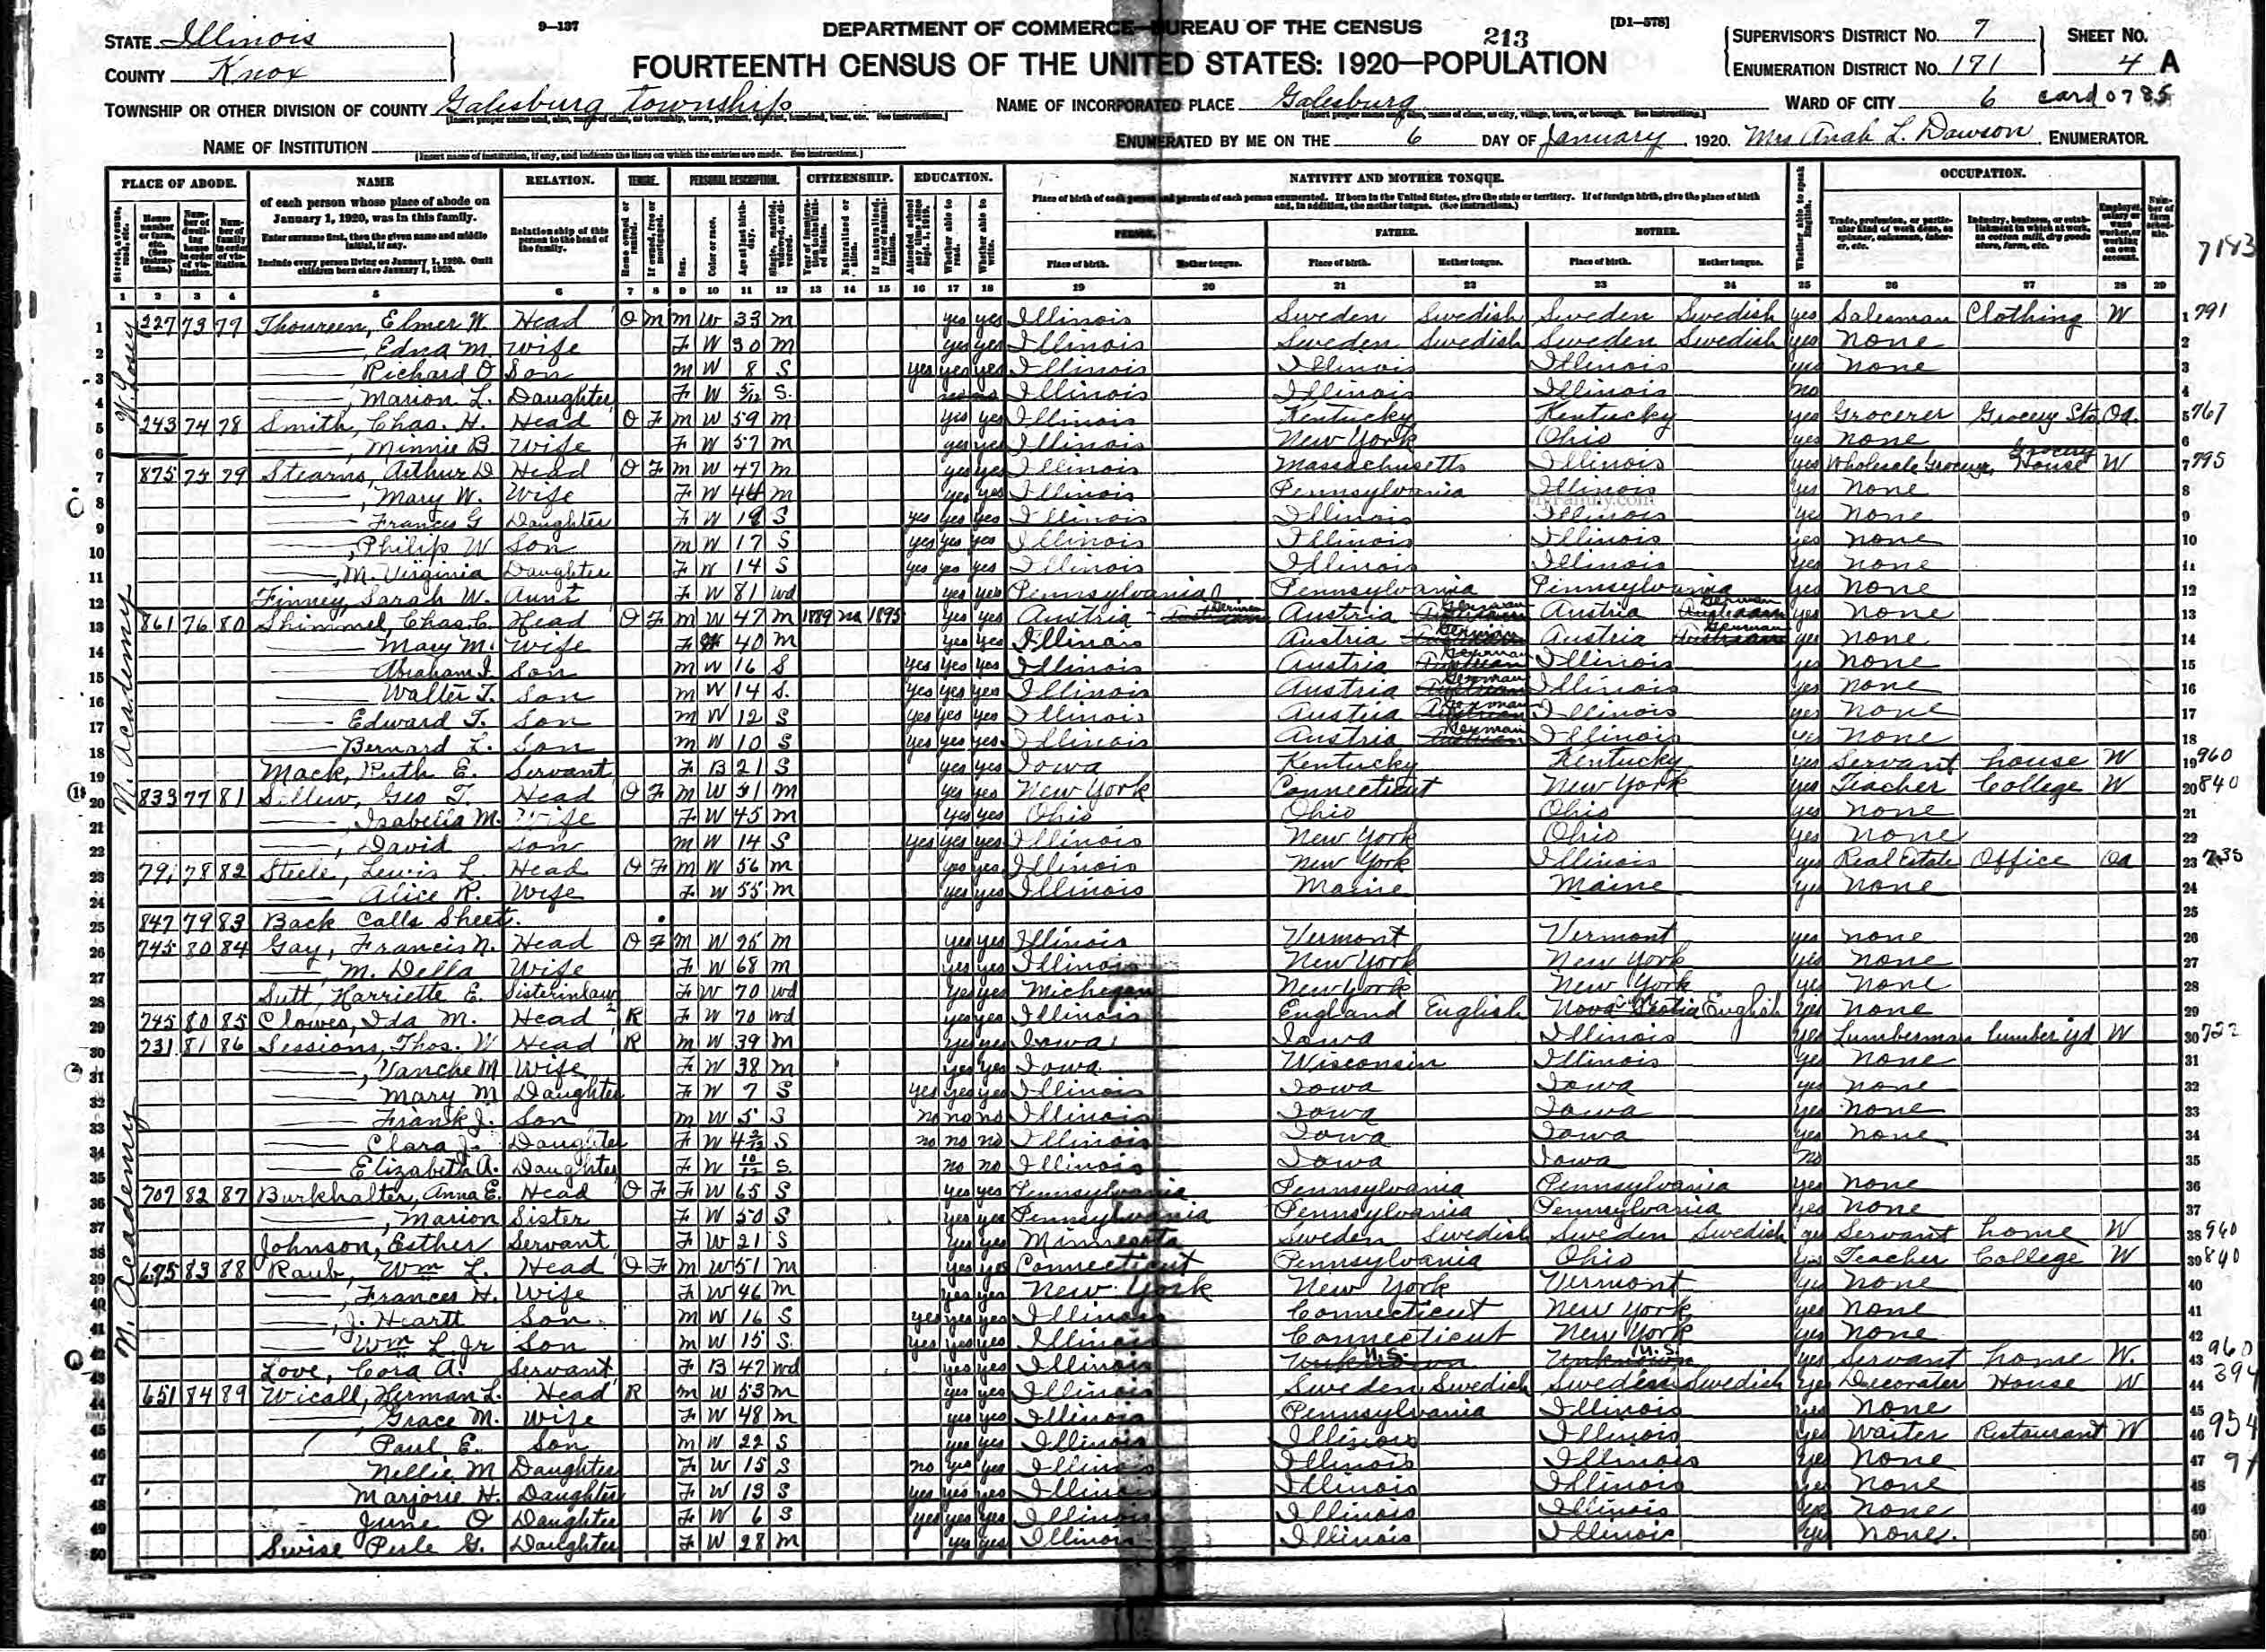 9-137
DEPARTMENT OF COMMERCE—BUREAU OF THE CENSUS
[D1-578]
213
STATE Illinois
COUNTY Knox
FOURTEENTH CENSUS OF THE UNITED STATES: 1920—POPULATION
SUPERVISOR'S DISTRICT No. 7
ENUMERATION DISTRICT No. 171
SHEET NO.
4 A
TOWNSHIP OR OTHER DIVISION OF COUNTY Galesburg Township
NAME OF INCORPORATED PLACE Galesburg
WARD OF CITY 6 card 0785
NAME OF INSTITUTION
ENUMERATED BY ME ON THE 6 DAY OF January, 1920. Mrs Anah L. Dawson ENUMERATOR.
PLACE OF ABODE. NAME RELATION. TENURE. PERSONAL DESCRIPTION. CITIZENSHIP. EDUCATION. NATIVITY AND MOTHER TONGUE. OCCUPATION.
of each person whose place of abode on January 1, 1920, was in this family.
Enter surname first, then the given name and middle initial, if any.
Include every person living on January 1, 1920. Omit children born since January 1, 1920.
Relationship of this person to the head of the family.
PERSON. FATHER. MOTHER.
Place of birth. Mother tongue. Place of birth. Mother tongue. Place of birth. Mother tongue.
7183
1 2 3 4 5 6 7 8 9 10 11 12 13 14 15 16 17 18 19 20 21 22 23 24 25 26 27 28 29
W. Losey
1 227 73 77 Thoureen, Elmer W. Head O M M W 33 M yes yes Illinois Sweden Swedish Sweden Swedish yes Salesman Clothing W 1 791
2 Edna M. Wife F W 30 M yes yes Illinois Sweden Swedish Sweden Swedish yes None 2
3 Richard O Son M W 8 S yes yes yes Illinois Illinois Illinois yes None 3
4 Marion L. Daughter F W S. Illinois Illinois Illinois no 4
5 243 74 78 Smith, Chas. H. Head O F M W 59 M yes yes Illinois Kentucky Kentucky yes Grocerer Grocery Sto. Oa. 5 767
6 Minnie B. Wife F W 57 M yes yes Illinois New York Ohio yes none 6
N. Academy
7 875 75 79 Stearns, Arthur D Head O F M W 47 M yes yes Illinois Massachusetts Illinois yes Wholesale Grocery House W 7 795
8 Mary W. Wife F W 44 M yes yes Illinois Pennsylvania Illinois yes None 8
9 Frances G Daughter F W S yes yes yes Illinois Illinois Illinois yes None 9
10 Philip W Son M W 17 S yes yes yes Illinois Illinois Illinois yes None 10
11 M. Virginia Daughter F W 14 S yes yes yes Illinois Illinois Illinois yes None 11
12 Finney, Sarah W. Aunt F W 81 Wd yes yes Pennsylvania Pennsylvania Pennsylvania yes None 12
13 861 76 80 Shimmel, Chas. C. Head O F M W 47 M 1889 na 1895 yes yes Austria German Austria German Austria German yes None 13
14 Mary M. Wife F W 40 M yes yes Illinois Austria German Austria German yes None 14
15 Abraham I. Son M W 16 S yes yes yes Illinois Austria German Illinois yes None 15
16 Walter T. Son M W 14 S. yes yes yes Illinois Austria German Illinois yes None 16
17 Edward T. Son M W 12 S yes yes yes Illinois Austria German Illinois yes None 17
18 Bernard L. Son M W 10 S yes yes yes Illinois Austria German Illinois yes None 18
19 Mack, Ruth E. Servant F B 21 S yes yes Iowa Kentucky Kentucky yes Servant house W 19 960
20 833 77 81 Sellew, Geo T. Head O F M W 51 M yes yes New York Connecticut New York yes Teacher College W 20 840
21 Isabella M. Wife F W 45 M yes yes Ohio Ohio Ohio yes None 21
22 David Son M W 14 S yes yes yes Illinois New York Ohio yes None 22
23 791 78 82 Steele, Lewis L. Head O F M W 56 M yes yes Illinois New York Illinois yes Real Estate Office Oa 23 735
24 Alice R. Wife F W 55 M yes yes Illinois Maine Maine yes None 24
25 847 79 83 Back Calls Sheet. 25
26 745 80 84 Gay, Francis N. Head O F M W 75 M yes yes Illinois Vermont Vermont yes none 26
27 M. Della Wife F W 68 M yes yes Illinois New York New York yes None 27
28 Sutt, Harriette E. Sisterinlaw F W 70 Wd yes yes Michegan New York New York yes None 28
29 745 80 85 Clowes, Ida M. Head R F W 70 Wd yes yes Illinois England English Nova Scotia English yes None 29
30 731 81 86 Sessions, Thos. W Head R M W 39 M yes yes Iowa Iowa Illinois yes Lumberman Lumber yd W 30 722
N. Academy
31 Vanche M Wife F W 38 M yes yes Iowa Wisconsin Illinois yes None 31
32 Mary M Daughter F W 7 S yes yes yes Illinois Iowa Iowa yes none 32
33 Frank J. Son M W 5 S no no no Illinois Iowa Iowa yes none 33
34 Clara J. Daughter F W S no no no Illinois Iowa Iowa yes None 34
35 Elizabeth A. Daughter F W 10/12 S. no no Illinois Iowa Iowa no 35
36 707 82 87 Burkhalter, Anna E. Head O F F W 65 S yes yes Pennsylvania Pennsylvania Pennsylvania yes None 36
37 Marion Sister F W 50 S yes yes Pennsylvania Pennsylvania Pennsylvania yes None 37
38 Johnson, Esther Servant F W 21 S yes yes Minnesota Sweden Swedish Sweden Swedish yes Servant home W 38 960
39 695 83 88 Raub, Wm L. Head O F M W 51 M yes yes Connecticut Pennsylvania Ohio yes Teacher College W 39 840
40 Frances H. Wife F W 46 M yes yes New York New York Vermont yes None 40
41 J. Heartt Son M W 16 S yes yes yes Illinois Connecticut New York yes None 41
42 Wm L. Jr Son M W 15 S. yes yes yes Illinois Connecticut New York yes None 42
43 Love, Cora A. Servant F B 47 Wd yes yes Illinois U.S. U.S. yes Servant home W. 43 960
44 651 84 89 Wicall, Herman L. Head R M W 53 M yes yes Illinois Sweden Swedish Sweden Swedish yes Decorater House W 44 394
45 Grace M. Wife F W 48 M yes yes Illinois Pennsylvania Illinois yes None 45
46 Paul E. Son M W 22 S yes yes Illinois Illinois Illinois yes Waiter Restaurant W 46 954
47 Nellie M Daughter F W 15 S no yes yes Illinois Illinois Illinois yes None 47
48 Marjorie H. Daughter F W 13 S yes yes yes Illinois Illinois Illinois yes None 48
49 June O Daughter F W 6 S yes yes yes Illinois Illinois Illinois yes None 49
50 Swise Perle G. Daughter F W 28 M yes yes Illinois Illinois Illinois yes None. 50